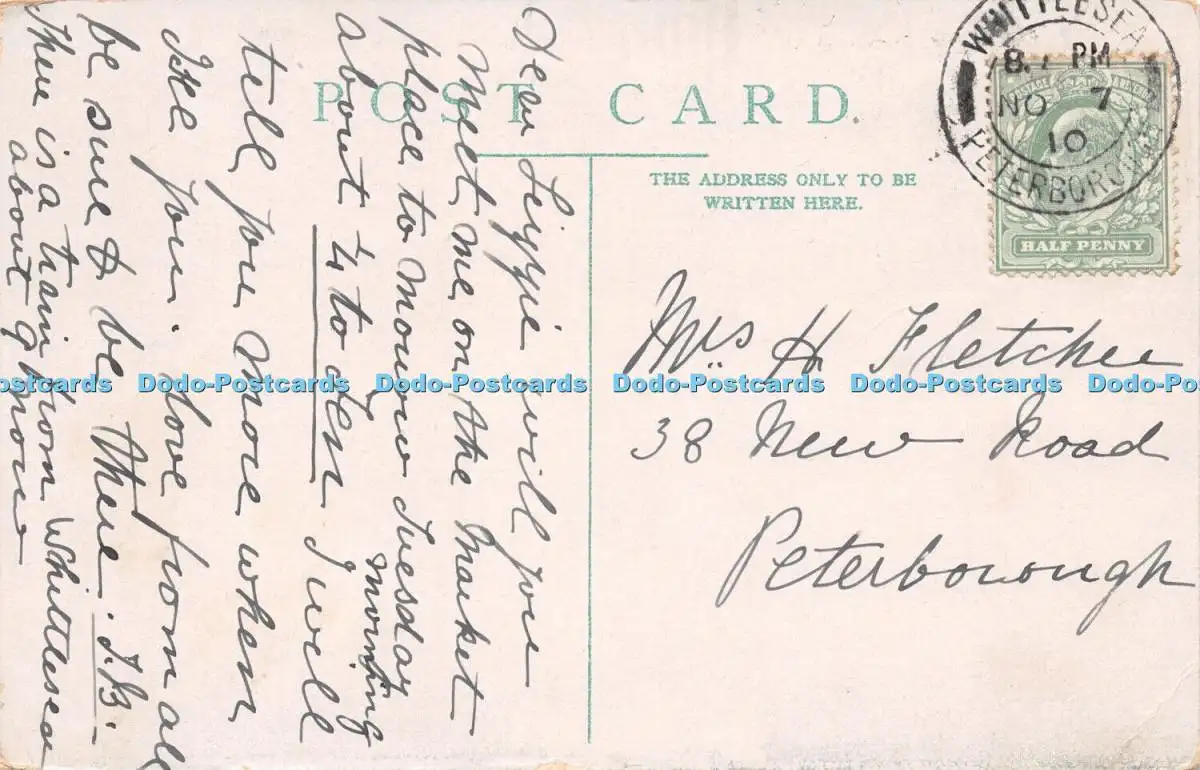 POST CARD.
THE ADDRESS ONLY TO BE
WRITTEN HERE.
WHITTLESEA
PM
NO 7
10
PETERBOROUGH
HALF PENNY
Mrs H Fletcher
38 New Road
Peterborough
Dear Lizzie will you
Meet me on the Market
place to morrow Tuesday
morning
about ¼ to ten I will
tell you more when
I see you. love from all
be sure & be there. J.B.
There is a train from Whittlesea
about 9 know
Dodo-Postcards Dodo-Postcards Dodo-Postcards Dodo-Postcards Dodo-Postcards